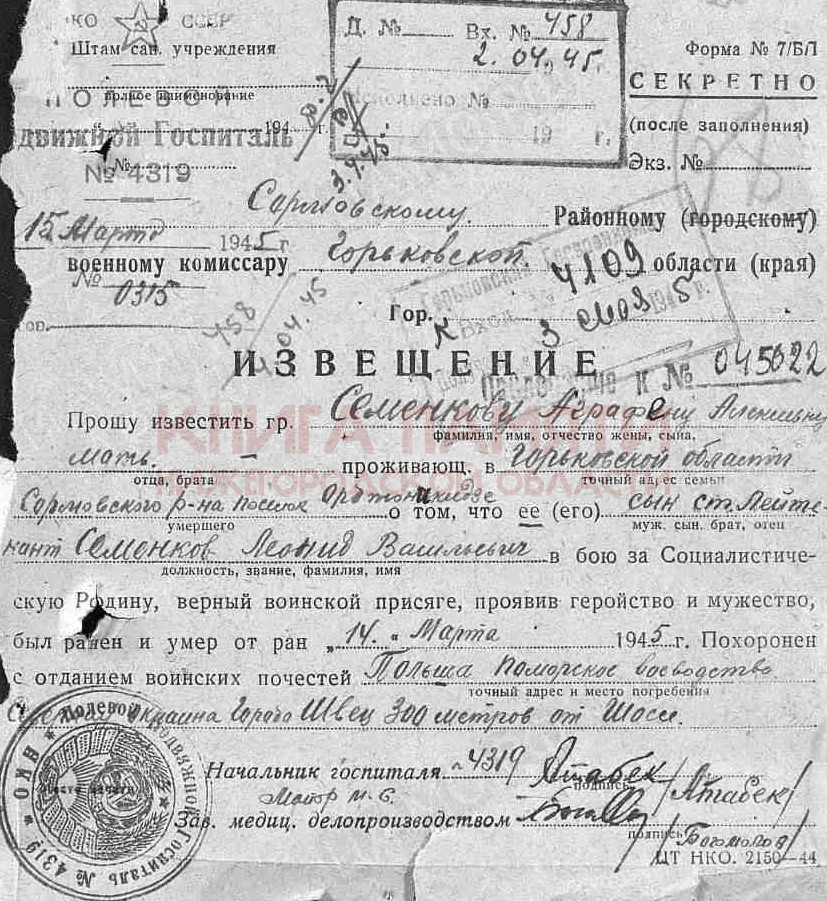 НКО СССР
Штам сан. учреждения
Д. № Вх. № 458
2. 04. 45.
Исполнено №
19 г.
Форма № 7/БЛ
СЕКРЕТНО
(после заполнения)
Экз. №
полное наименование
ПОЛЕВОЙ
194 г.
движной Госпиталь
№
№ 4319
3.4.45.
Сормовскому Районному (городскому)
15 Марта 1945 г
военному комиссару Горьковской области (края)
№ 0315
4109
458
04.45
Гор.
Вход.
3 1945 г.
ИЗВЕЩЕНИЕ
к № 045022
Прошу известить гр. Семенкову Аграфену
фамилия, имя, отчество жены, сына,
мать. — проживающ. в Горьковской области
отца, брата точный адрес семьи
Сормовского р-на поселок Орджоникидзе о том, что ее (его) сын ст. Лейте-
умершего муж. сын, брат, отец
нант Семенков Леонид Васильевич в бою за Социалистиче-
должность, звание, фамилия, имя
скую Родину, верный воинской присяге, проявив геройство и мужество,
был ранен и умер от ран „14 „ Марта 1945 г. Похоронен
с отданием воинских почестей Польша Поморское воеводство
точный адрес и место погребения
окраина города Швец 300 метров от Шоссе.
Начальник госпиталя 4319 Атабек /Атабек/
подпись
Майор м. с.
Зав. медиц. делопроизводством
подпись Богомолов/
ЦТ НКО. 2150—44
КНИГА ПАМЯТИ
НИЖЕГОРОДСКОЙ ОБЛАСТИ
НКО * Полевой Подвижной Госпиталь № 4319 *
Место печати